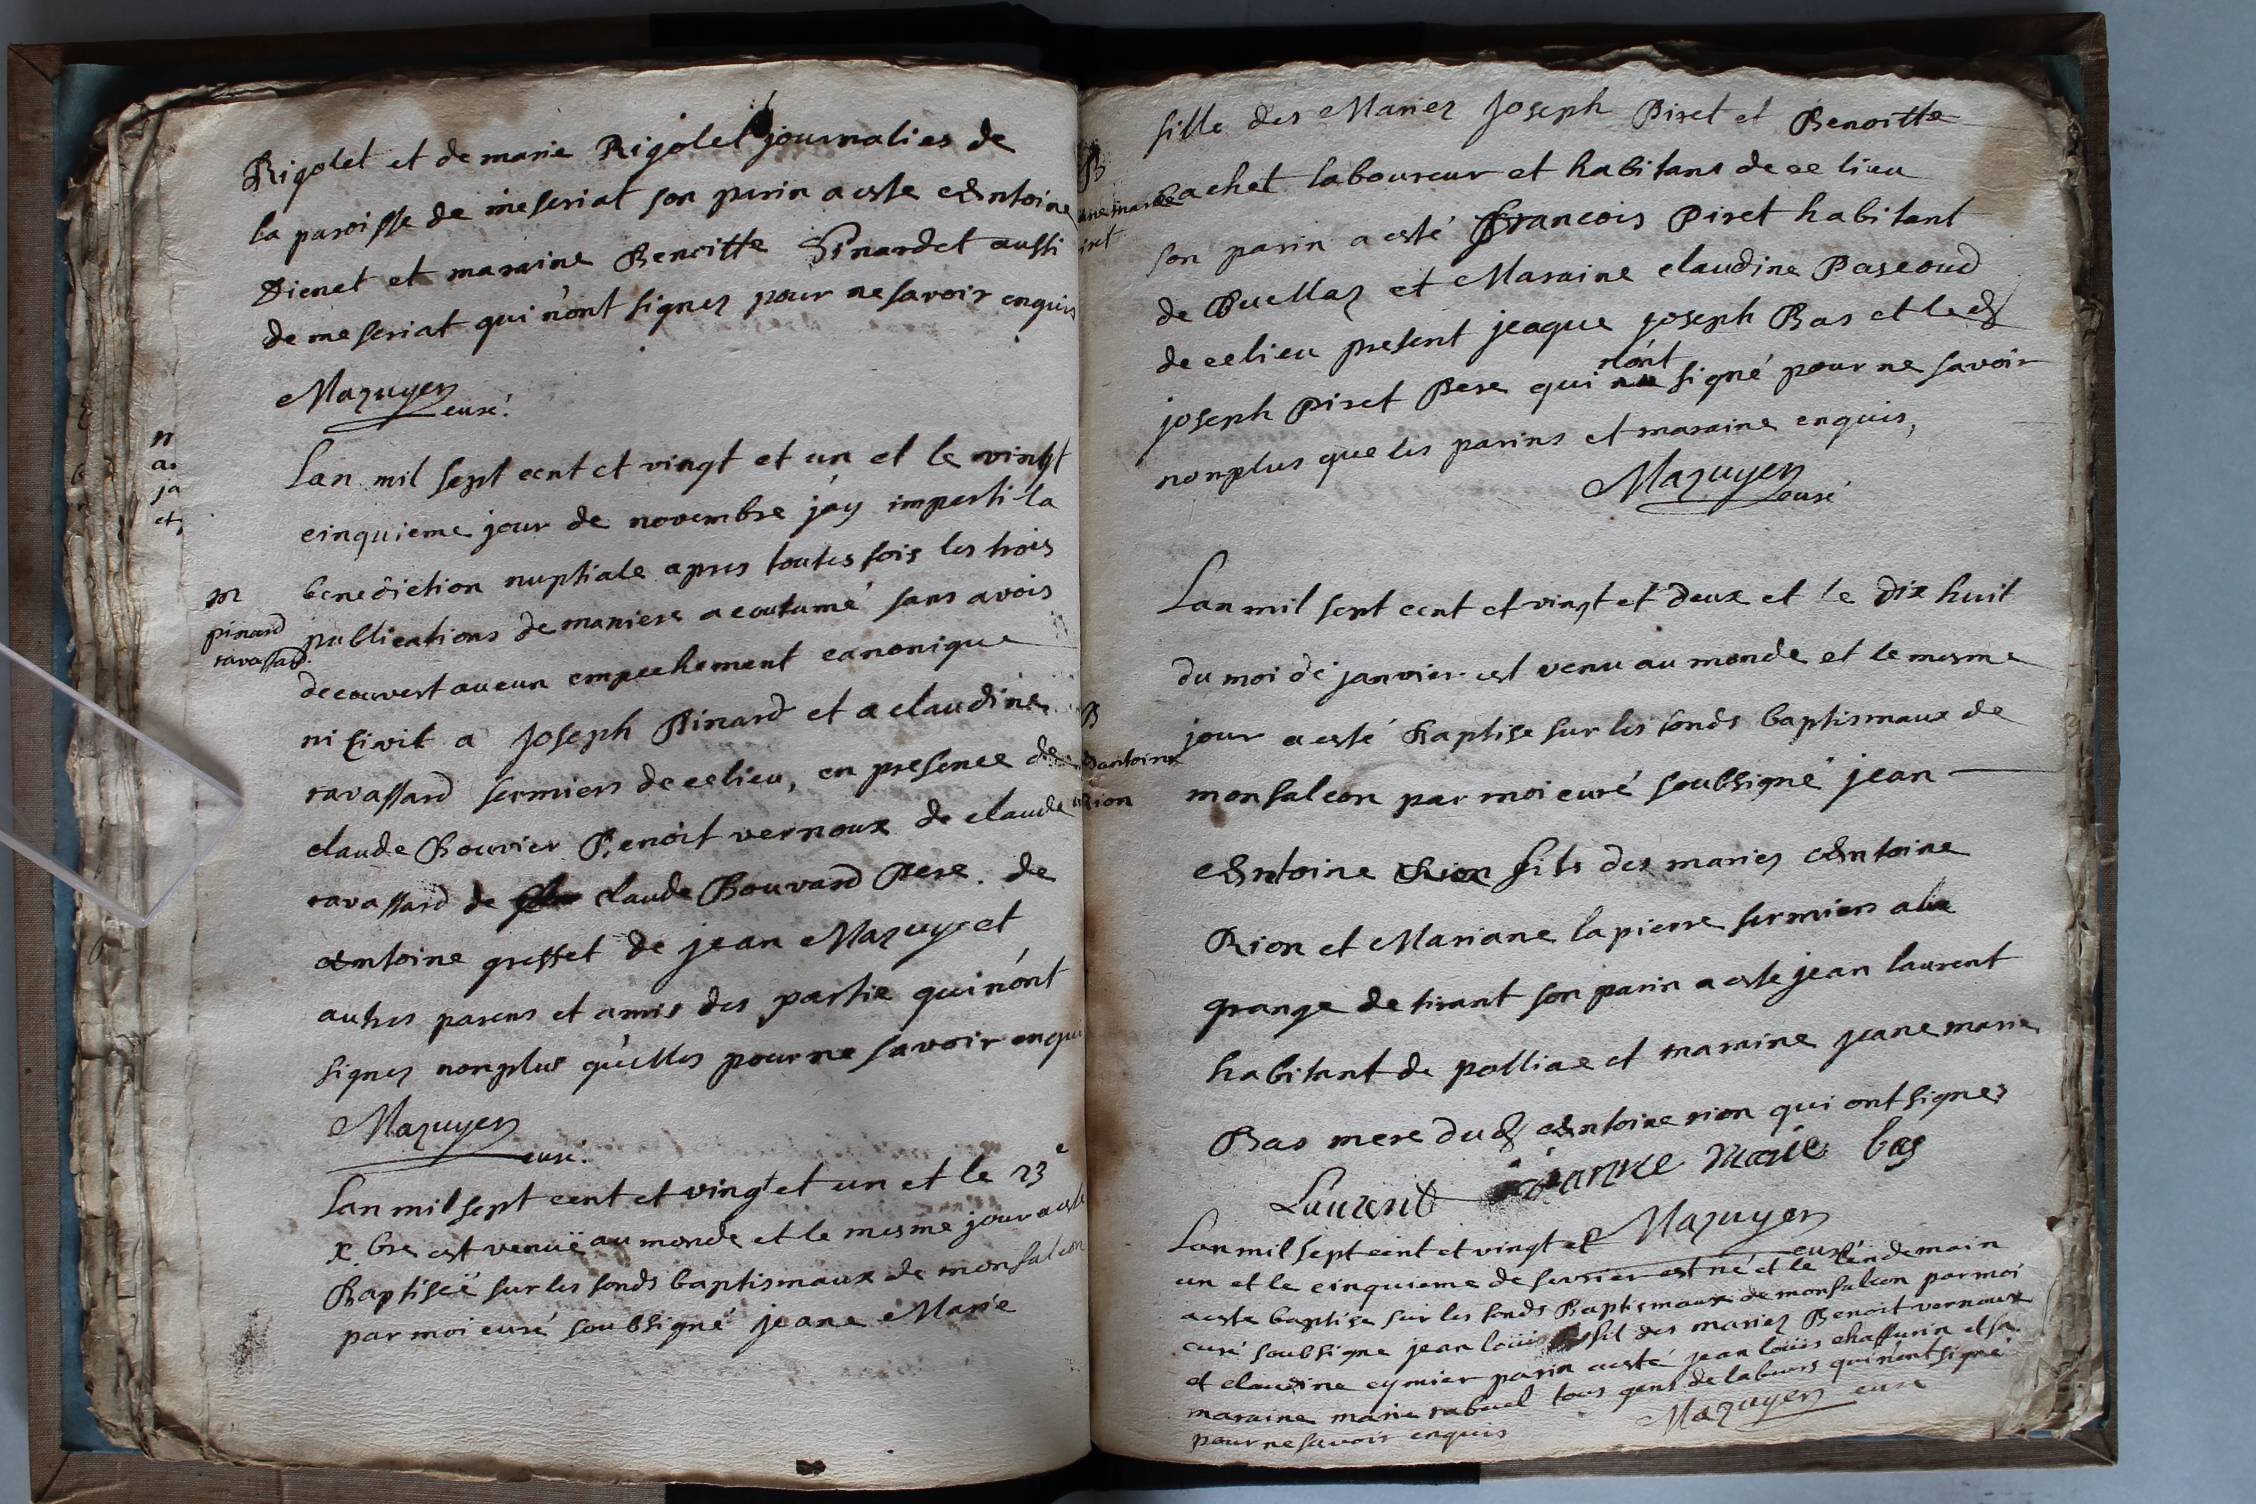 Rigolet et de marie Rigolet journalies de
la paroisse de meseriat son parin a este Antoine
Dienet et maraine Benoitte Pinardet aussi
de meseriat qui n'ont signez pour ne savoir enquis
Mazuyer
curé.
Lan mil sept cent et vingt et un et le vingt
cinquieme jour de novembre j'ay imparti la
benediction nuptiale apres toutes fois les trois
publications de maniere acoutumé sans avoir
decouvert aucun empechement canonique
ni civil a Joseph Pinard et a claudine
ravassard fermiers de ce lieu, en presence de
claude Bouvier Benoit vernoux de claude
ravassard de claude Bouvard Pere. de
Antoine gresset de jean Mazuye et
autres parens et amis des partie qui n'ont
signez nonplus qu'elles pour ne savoir enqui
Mazuyer
curé.
Lan mil sept cent et vingt et un et le 23e
x.bre est venuë au monde et le mesme jour a esté
Baptiseë sur les fonds baptismaux de monfalcon
par moi curé soubsigné jeane Marie
m
pinard
ravassard.
B
ane marie
iret
fille des Mariez Joseph Piret et Benoitte
achet laboureur et habitans de ce lieu
son parin a esté francois Piret habitant
de Buellaz et Maraine claudine Pascoud
de ce lieu present jeaque joseph Bas et led
joseph Piret Pere qui n'ont signé pour ne savoir
nonplus que les parins et maraine enquis,
Mazuyer
curé
Lan mil sept cent et vingt et deux et le dix huit
du moi de janvier est venu au monde et le mesme
jour a esté Baptise sur les fonds baptismaux de
monfalcon par moi curé soubsigné jean
Antoine Rion fils des mariez Antoine
Rion et Mariane lapierre fermiers a la
grange de tirant son parin a este jean laurent
habitant de polliae et maraine jeane marie
Bas mere dud Antoine rion qui ont signez
B
antoine
rion
Laurent jeanne marie bas
Mazuyer
curé
Lan mil sept cent et vingt et
un et le cinquieme de fevrier est né et le lendemain
a este baptise sur les fonds Baptismaux de monfalcon par moi
curé soubsigne jean loüis fil des mariez Benoit vernoux
et claudine eymier parin a esté jean loüis chassurin et sa
maraine marie rabuel tous gens de labours qui n'ont signé
pour ne savoir enquis
Mazuyer curé